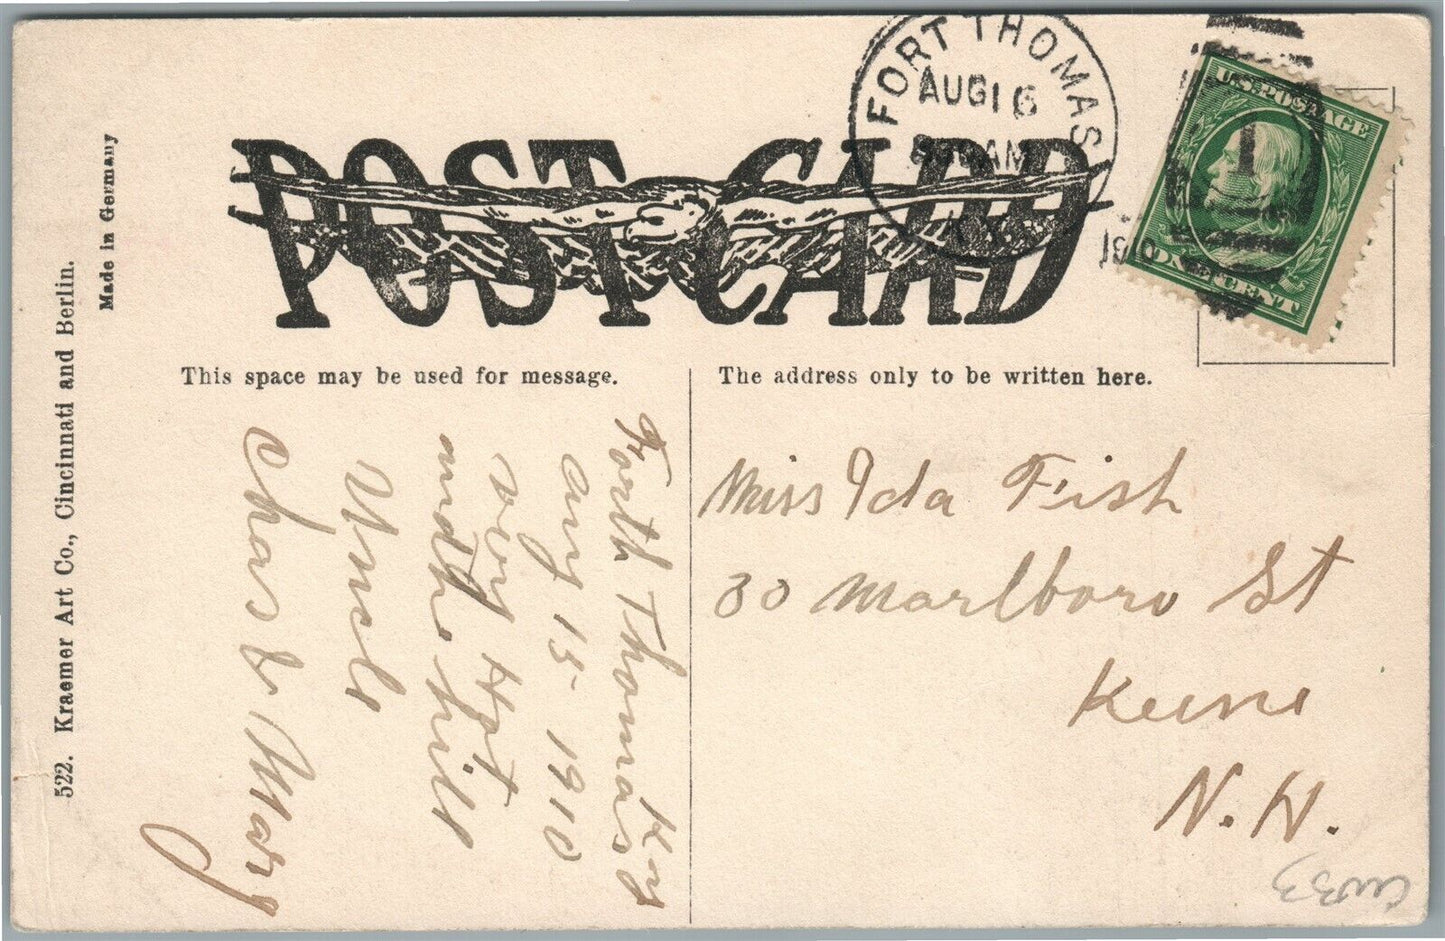 POST CARD
FORT THOMAS
AUG 16
AM
KY.
1910
U.S. POSTAGE
1
ONE CENT
Made in Germany
522. Kraemer Art Co., Cincinnati and Berlin.
This space may be used for message.
The address only to be written here.
Forth Thomas Ky
Aug 15- 1910
very Hot
and the hill
Uncle
Chas & Mary
Miss Ida Fish
30 Marlboro St
Keene
N.H.